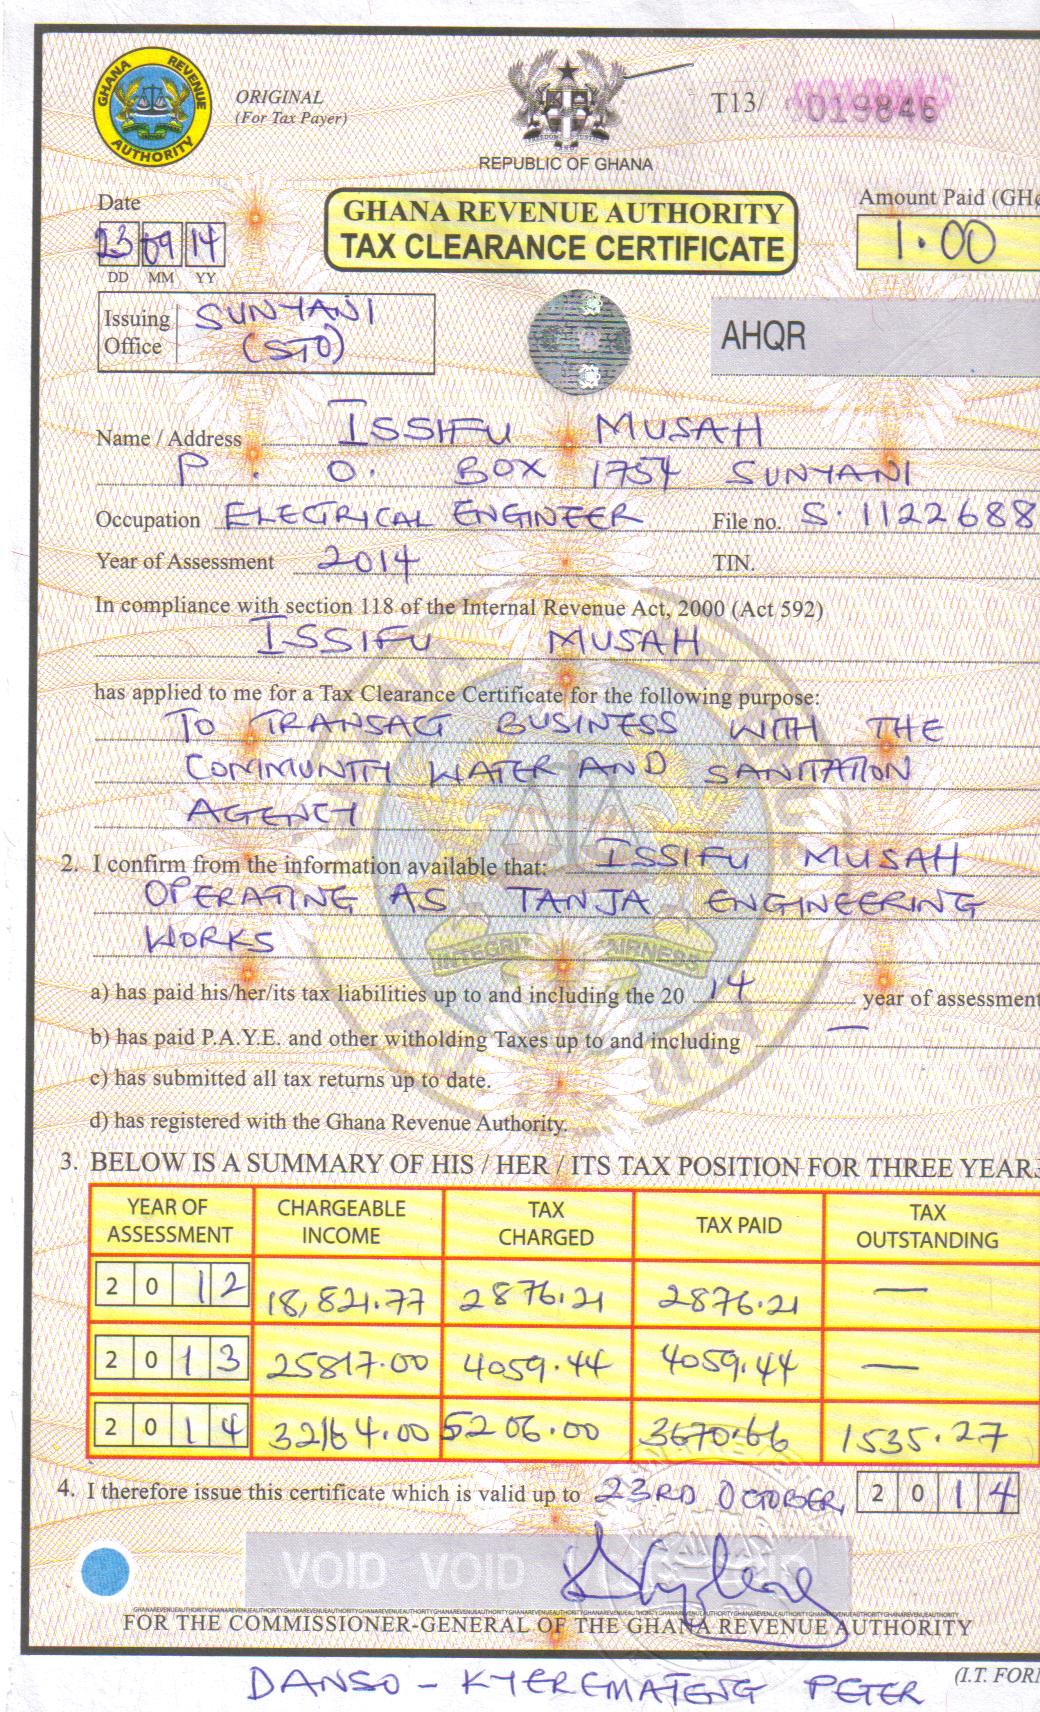 GHANA REVENUE AUTHORITY
ORIGINAL
(For Tax Payer)
REPUBLIC OF GHANA
T13/ 019846
Date
23 09 14
DD MM YY
GHANA REVENUE AUTHORITY
TAX CLEARANCE CERTIFICATE
Amount Paid (GH¢
1.00
Issuing Office SUNYANI
(STO)
AHQR
Name / Address ISSIFU MUSAH
P. O. BOX 1754 SUNYANI
Occupation ELECTRICAL ENGINEER File no. S.1122688
Year of Assessment 2014 TIN.
In compliance with section 118 of the Internal Revenue Act, 2000 (Act 592)
ISSIFU MUSAH
has applied to me for a Tax Clearance Certificate for the following purpose:
TO TRANSACT BUSINESS WITH THE
COMMUNITY WATER AND SANITATION
AGENCY
2. I confirm from the information available that: ISSIFU MUSAH
OPERATING AS TANJA ENGINEERING
WORKS
a) has paid his/her/its tax liabilities up to and including the 20 14 year of assessment
b) has paid P.A.Y.E. and other witholding Taxes up to and including —
c) has submitted all tax returns up to date.
d) has registered with the Ghana Revenue Authority.
3. BELOW IS A SUMMARY OF HIS / HER / ITS TAX POSITION FOR THREE YEAR
YEAR OF ASSESSMENT CHARGEABLE INCOME TAX CHARGED TAX PAID TAX OUTSTANDING
2012 18,821.77 2876.21 2876.21 —
2013 25817.00 4059.44 4059.44 —
2014 32164.00 5206.00 3670.66 1535.27
4. I therefore issue this certificate which is valid up to 23RD OCTOBER, 2014
VOID VOID
FOR THE COMMISSIONER-GENERAL OF THE GHANA REVENUE AUTHORITY
(I.T. FOR
DANSO - KYEREMATENG PETER